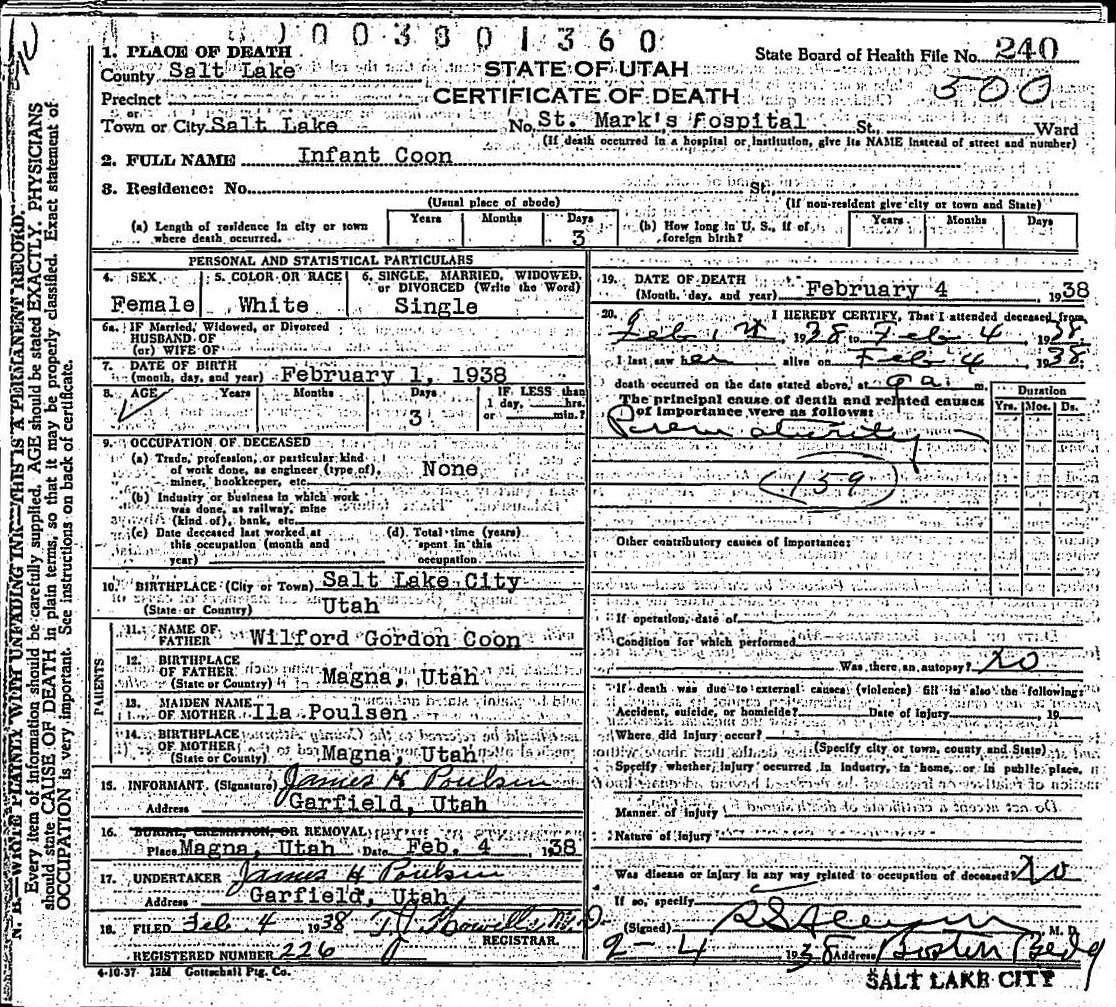 003801360
1. PLACE OF DEATH
State Board of Health File No. 240
County Salt Lake
STATE OF UTAH
500
Precinct
CERTIFICATE OF DEATH
or
Town or City Salt Lake No. St. Mark's Fospital St. Ward
(If death occurred in a hospital or institution, give its NAME instead of street and number)
2. FULL NAME Infant Coon
3. Residence: No. St.
(Usual place of abode) (If non-resident give city or town and State)
(a) Length of residence in city or town where death occurred. Years Months Days 3
(b) How long in U. S., if of foreign birth? Years Months Days
PERSONAL AND STATISTICAL PARTICULARS
4. SEX Female
5. COLOR OR RACE White
6. SINGLE, MARRIED, WIDOWED, or DIVORCED (Write the Word) Single
6a. IF Married, Widowed, or Divorced
HUSBAND OF
(or) WIFE OF
7. DATE OF BIRTH
(month, day, and year) February 1, 1938
8. AGE Years Months Days 3 IF LESS than 1 day, hrs. or min.?
9. OCCUPATION OF DECEASED
(a) Trade, profession, or particular kind
of work done, as engineer (type of), None
miner, bookkeeper, etc.
(b) Industry or business in which work
was done, as railway, mine
(kind of), bank, etc.
(c) Date deceased last worked at this occupation (month and year)
(d) Total time (years) spent in this occupation
10. BIRTHPLACE (City or Town) Salt Lake City
(State or Country) Utah
PARENTS
11. NAME OF FATHER Wilford Gordon Coon
12. BIRTHPLACE OF FATHER
(State or Country) Magna, Utah
13. MAIDEN NAME OF MOTHER Ila Poulsen
14. BIRTHPLACE OF MOTHER
(State or Country) Magna, Utah
15. INFORMANT. (Signature) James H Poulsen
Address Garfield, Utah
16. BURIAL, CREMATION, OR REMOVAL
Place Magna, Utah Date Feb. 4 1938
17. UNDERTAKER James H Poulsen
Address Garfield, Utah
18. FILED Feb. 4 1938 M.D.
REGISTRAR.
REGISTERED NUMBER 226
4-10-37 12M Gottschall Ptg. Co.
19. DATE OF DEATH
(Month, day, and year) February 4 1938
20. I HEREBY CERTIFY, That I attended deceased from
Feb 1st 1938 to Feb 4 1938.
I last saw her alive on Feb 4 1938.
death occurred on the date stated above, at 9 a. m.
The principal cause of death and related causes
of importance were as follows:
Duration
Yrs. Mos. Ds.
Prematurity
159
Other contributory causes of importance:
If operation, date of
Condition for which performed
Was there an autopsy? No
If death was due to external causes (violence) fill in also the following:
Accident, suicide, or homicide? Date of injury 19
Where did injury occur?
(Specify city or town, county and State)
Specify whether injury occurred in industry, in home, or in public place.
Manner of injury
Nature of injury
Was disease or injury in any way related to occupation of deceased? No
If so, specify
(Signed) M. D.
2-4 1938 Address Boston Bldg
SALT LAKE CITY
N. B.—WRITE PLAINLY WITH UNFADING INK—THIS IS A PERMANENT RECORD.
Every item of information should be carefully supplied. AGE should be stated EXACTLY. PHYSICIANS
should state CAUSE OF DEATH in plain terms, so that it may be properly classified. Exact statement of
OCCUPATION is very important. See instructions on back of certificate.